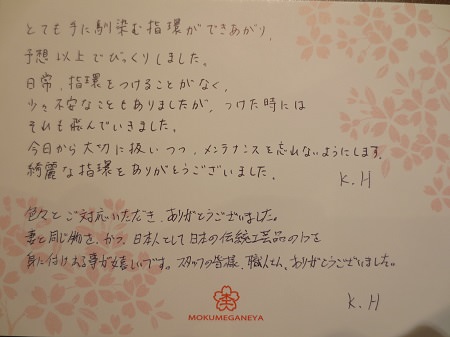 とても手に馴染む指環ができあがり、
予想以上でびっくりしました。
日常、指環をつけることがなく、
少々不安なこともありましたが、つけた時には
それも飛んでいきました。
今日から大切に扱いつつ、メンテナンスを忘れないようにします。
綺麗な指環をありがとうございました。
K.H
色々とご対応いただき、ありがとうございました。
妻と同じ物を、かつ、日本人として日本の伝統工芸品の1つを
身に付ける事が嬉しいです。スタッフの皆様、職人さん、ありがとうございました。
K.H
MOKUMEGANEYA